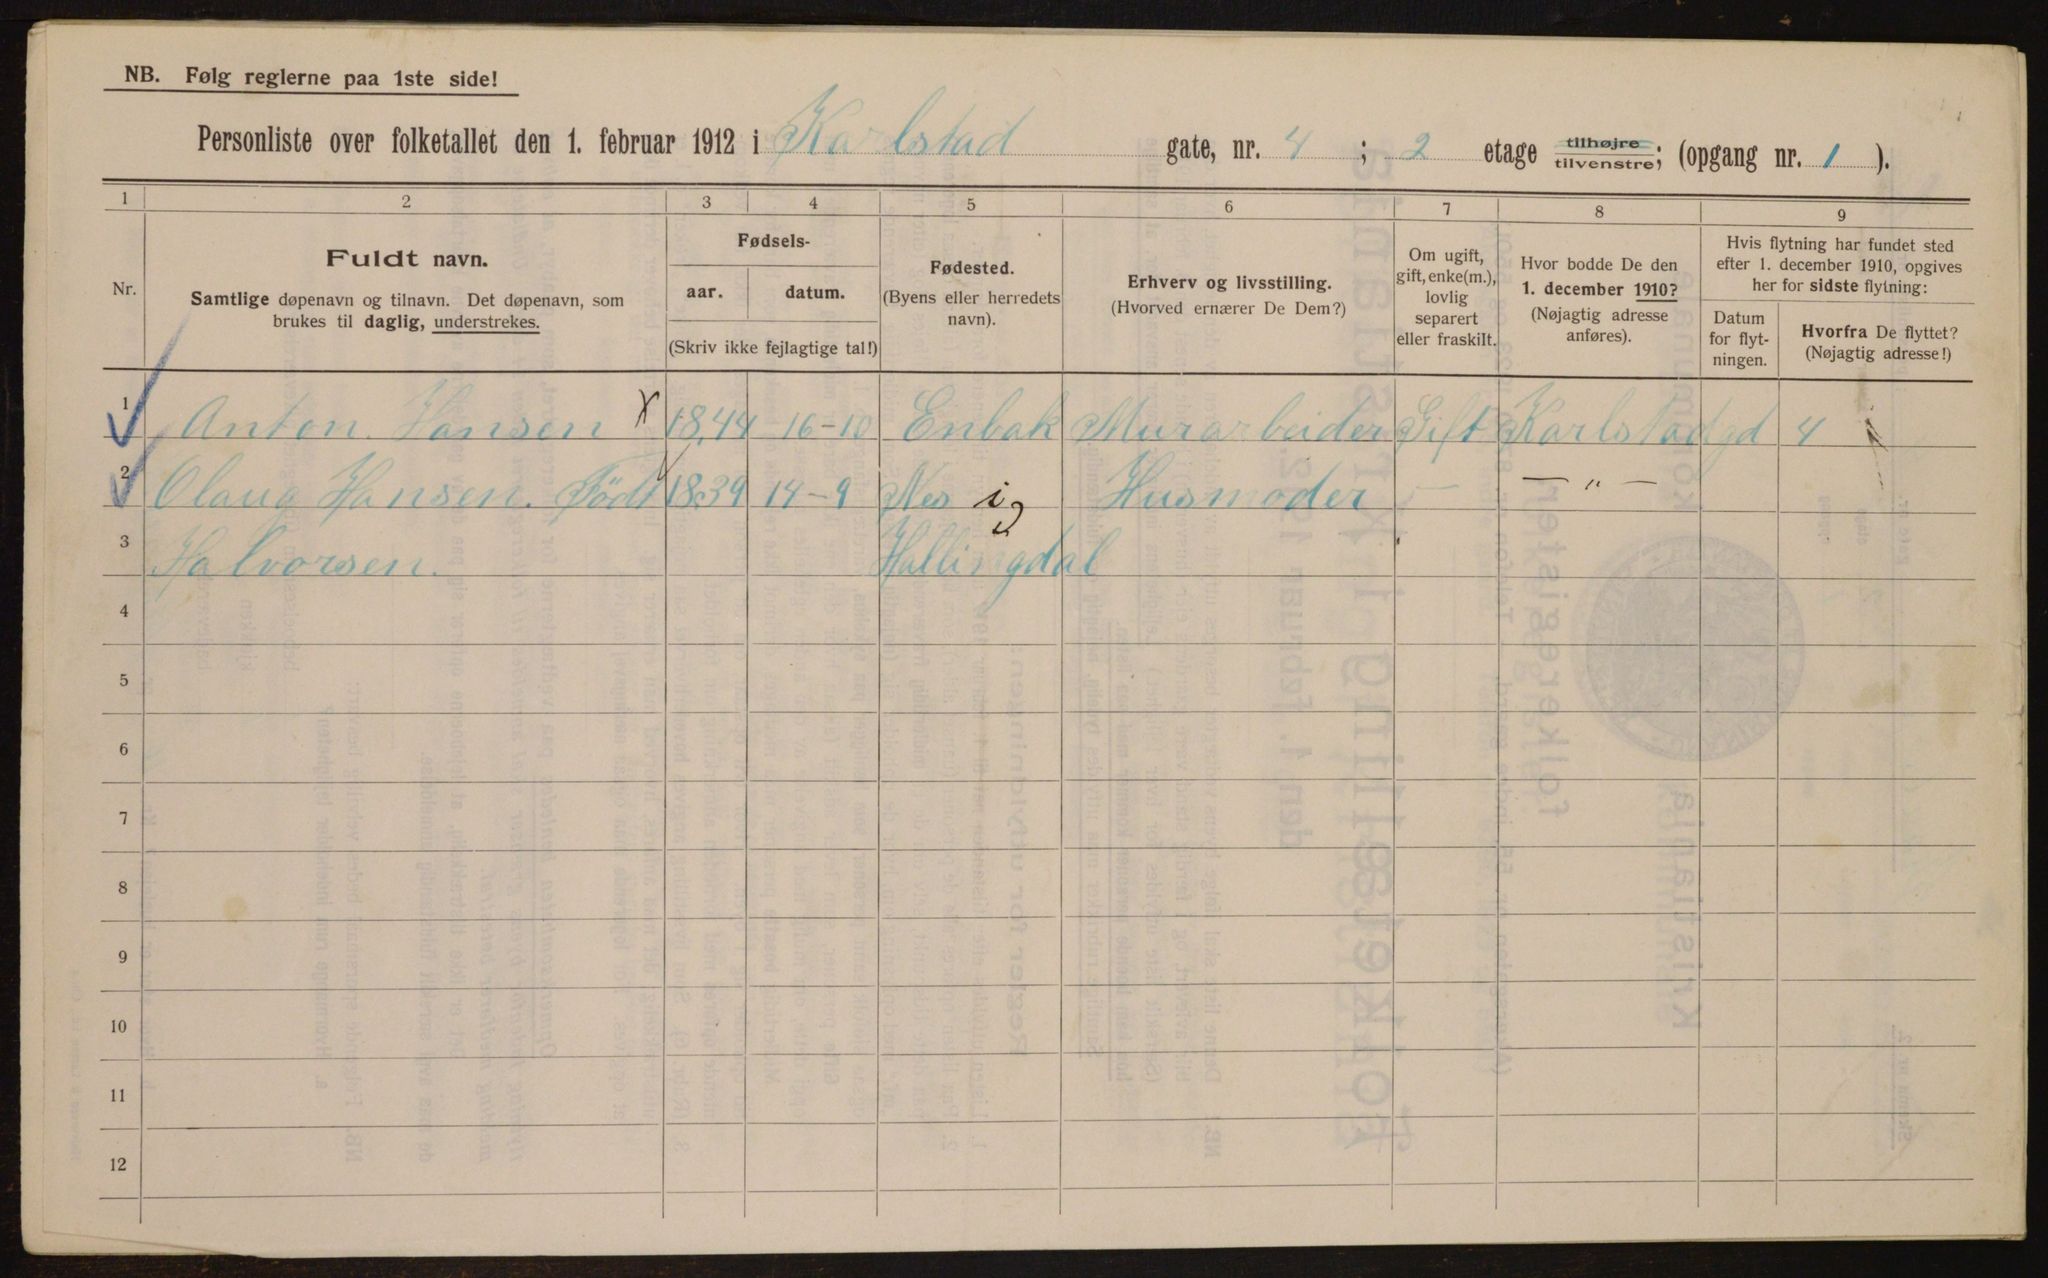 NB. Følg reglerne paa 1ste side!
Personliste over folketallet den 1. februar 1912 i Karlstad gate, nr. 4 ; 2 etage tilhøjre tilvenstre; (opgang nr. 1 ).
1 2 3 4 5 6 7 8 9
Nr.
Fuldt navn.
Samtlige døpenavn og tilnavn. Det døpenavn, som
brukes til daglig, understrekes.
Fødsels-
aar. datum.
(Skriv ikke fejlagtige tal!)
Fødested.
(Byens eller herredets
navn).
Erhverv og livsstilling.
(Hvorved ernærer De Dem?)
Om ugift,
gift, enke(m.),
lovlig
separert
eller fraskilt.
Hvor bodde De den
1. december 1910?
(Nøjagtig adresse
anføres).
Hvis flytning har fundet sted
efter 1. december 1910, opgives
her for sidste flytning:
Datum
for flyt-
ningen.
Hvorfra De flyttet?
(Nøjagtig adresse!)
1 Anton. Hansen 1844 16-10 Enbak Murarbeider Gift Karlstadgd 4
2 Olaug Hansen. Født 1839 14-9 Nes i Husmoder — — " —
3 Halvorsen. Hallingdal
4
5
6
7
8
9
10
11
12